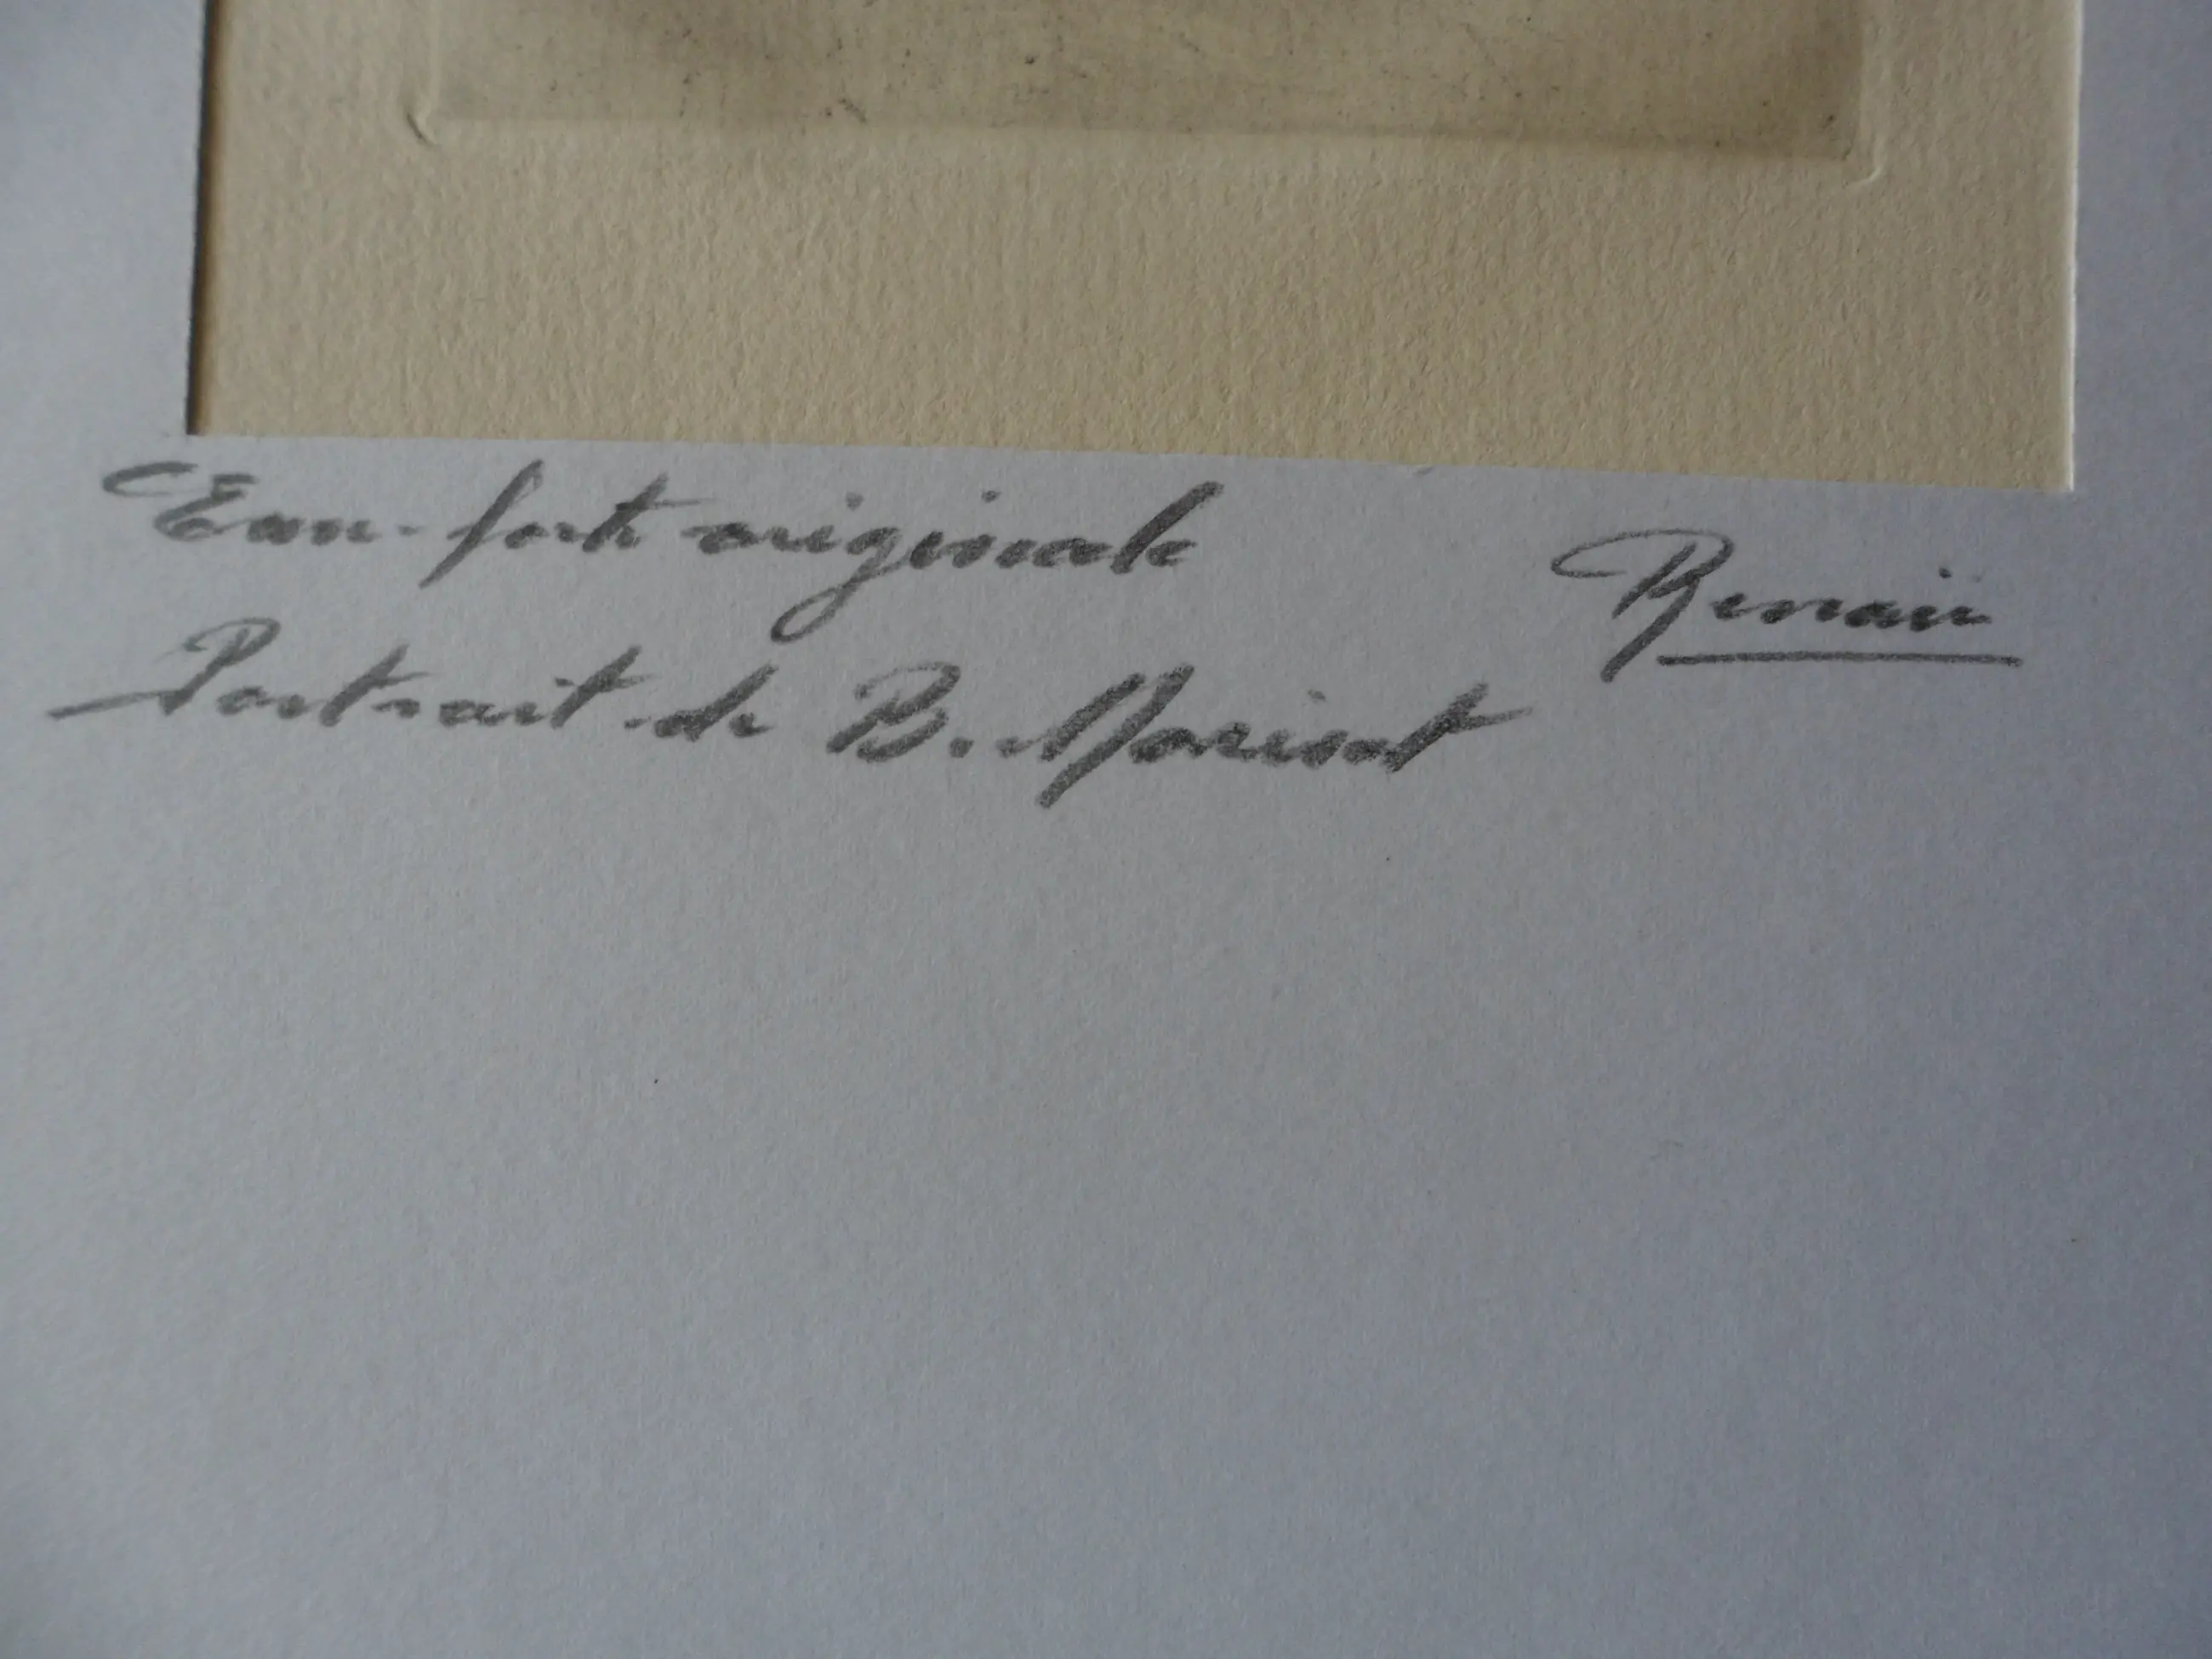 Eau-forte originale
Renoir
Portrait de B. Morisot